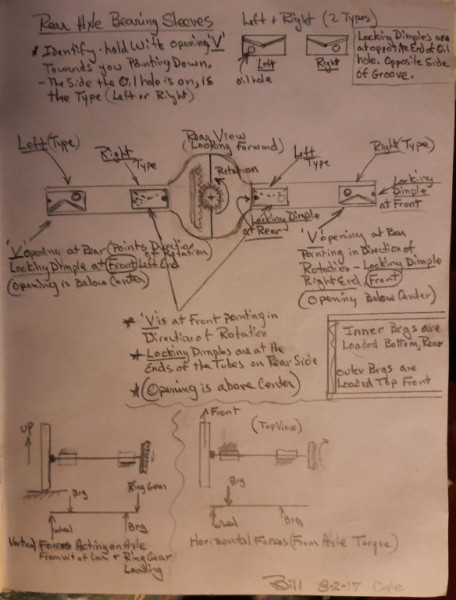 Rear Axle Bearing Sleeves
* Identify-hold With opening "V"
Towards you Pointing Down.
-The Side the Oil hole is on, is
the Type (Left or Right)
Left + Right (2 Types)
Left
Right
Oil hole
Locking Dimples are
at opposite End of Oil
hole. Opposite Side
of Groove.
Rear View
(Looking Forward)
Rotation
Left (Type)
Right
Type
Left
Type
Right (Type)
Locking
Dimple
at Front
Locking Dimple
at Rear
"V" opening at Rear (Points Direction
of Rotation)
Locking Dimple at Front Left End
(Opening is Below Center)
"V" opening at Rear
Pointing in Direction of
Rotation - Locking Dimple
Right End (Front)
(Opening Below Center)
* "V" is at Front pointing in
Direction of Rotation
* Locking Dimples are at the
Ends of the Tubes on Rear Side
* (Opening is above Center)
Inner Brgs are
Loaded Bottom, Rear
Outer Brgs are
Loaded Top Front
UP
Brg
Ring Gear
Wheel
Brg
Vertical Forces Acting on Axle
From Wt of Car + Ring Gear
Loading
Front
(Top View)
Brg
Wheel
Brg
Horizontal Forces (From Axle Torque)
Bill 8-2-17